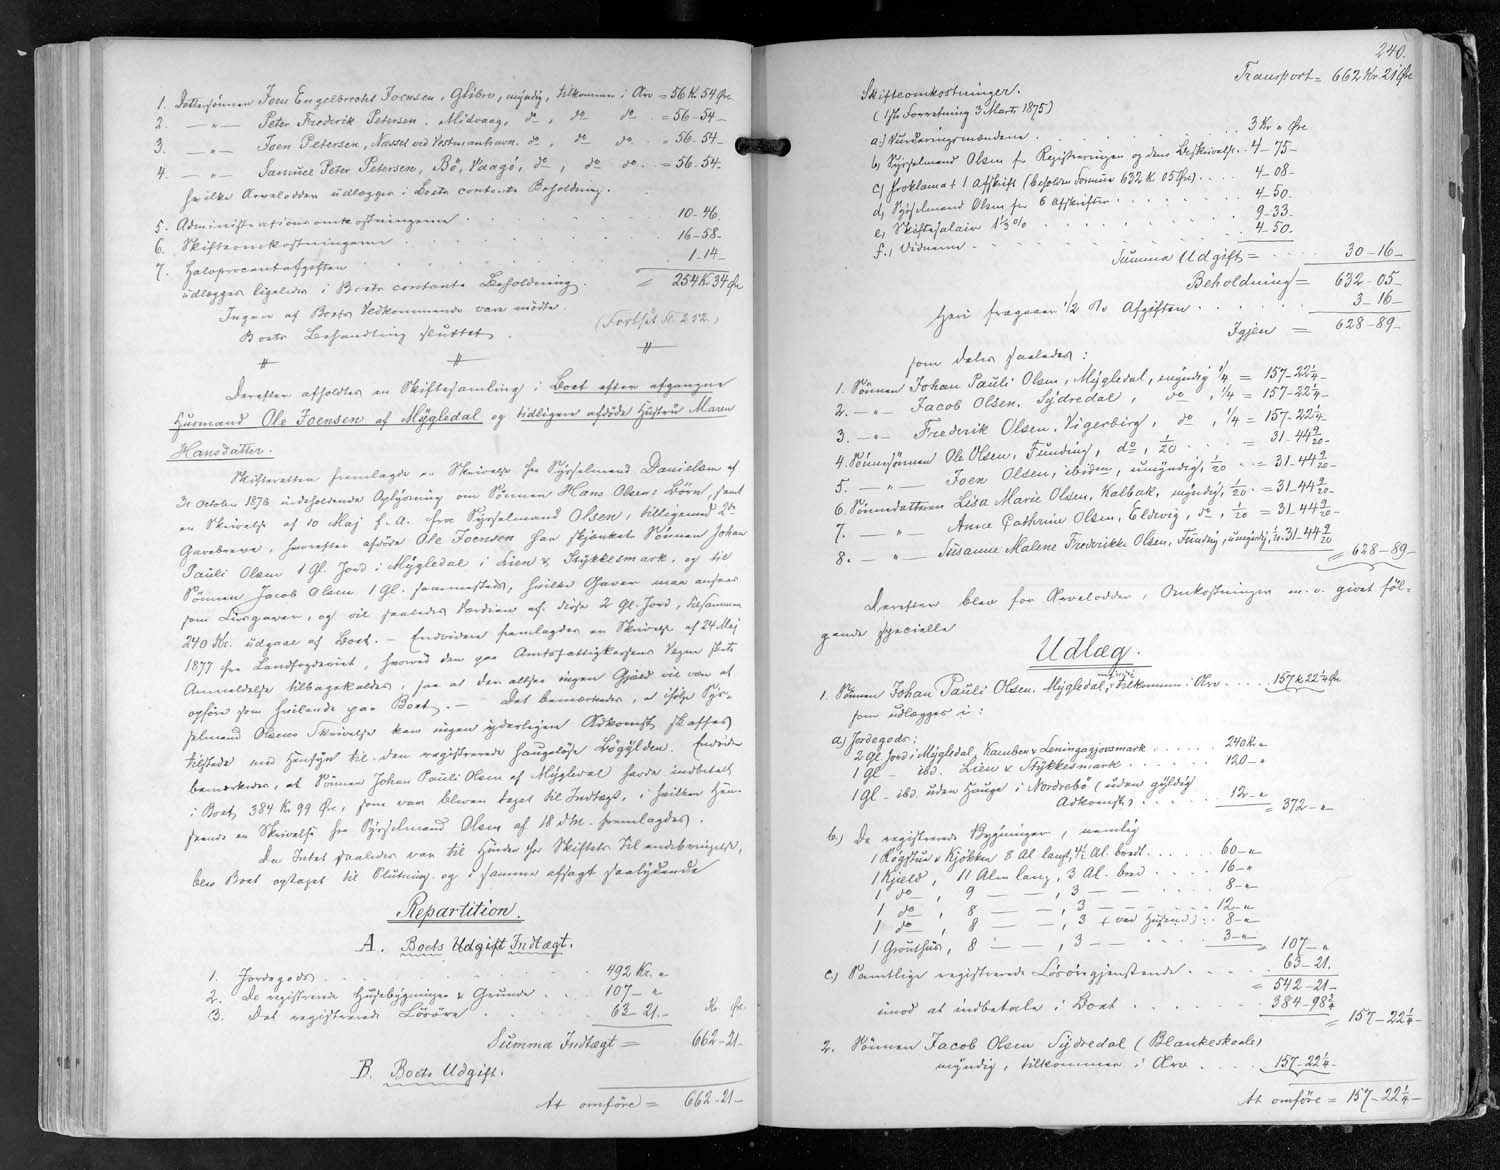 1. Dattersønnen Joen Engelbrecht Joensen, Glibre, myndig, tilkommer i Arv = 56 Kr. 54 Øre
2. — " — Peter Frederik Petersen, Midvaag, do, do do = 56 - 54 —
3. — " — Joen Petersen, Næsset ved Vestmanhavn. do, do do " 56 - 54 -
4. — " — Samuel Peter Petersen, Bö, Vaagö, do, do do = 56 - 54 -
hvilke Arvelodder udlægges i Boets contante Beholdning.
5. Administrationsomkostningerne . . . . 10 - 46.
6. Skifteomkostningerne . . . . 16 - 58 -
7. Halvprocentafgiften . . . . 1 - 14 -
udlægges ligeledes i Boets contante Beholdning. = 254 Kr 34 Øre
Ingen af Boets Vedkommende vare mødte.
Boets Behandling sluttet. (Fortsat Fl. 252.)
Derefter afholdtes en Skiftesamling i Boet efter afgangne
Husmand Ole Joensen af Mygledal og tidligere afdöde Hustru Maren
Hansdatter.
Skifteretten fremlagde en Skrivelse fra Sysselmand Danielsen af
31 October 1876 indeholdende Oplysning om Sönnen Hans Olsens Börn, samt
en Skrivelse af 10 Maj f. A. fra Sysselmand Olsen, tilligemed 2de
Gavebreve, hvorefter afdöde Ole Joensen har skjænket Sönnen Johan
Pauli Olsen 1 Gl. Jord i Mygledal i Lien & Stykkesmark, og til
Sönnen Jacob Olsen 1 Gl. sammesteds, hvilke Gaver maa ansees
som Livsgaver, og vil saaledes Værdien af disse 2 Gl. Jord, tilsammen
240 Kr. udgaae af Boet. — Endvidere fremlagdes en Skrivelse af 24 Maj
1877 fra Landfogderiet, hvorved den paa Amtsfattigkassens Vegne skete
Anmeldelse tilbagekaldes, saa at der altsaa ingen Gjæld vil være at
opföre som hvilende paa Boet. — Det bemærkedes, at ifølge Sys-
selmand Olsens Skrivelse kan ingen yderligere Adkomst skaffes
tilstede med Hensyn til den registrerede haugelöse Bögylden. Endvidere
bemærkedes, at Sönnen Johan Pauli Olsen af Mygledal havde indbetalt
i Boet 384 Kr 99 Øre, som var bleven taget til Indtægt, i hvilken Hen-
seende en Skrivelse fra Sysselmand Olsen af 18 d.M. fremlagdes.
Da Intet saaledes var til Hinder for Skiftets Tilendebringelse,
blev Boet optaget til Slutning og i samme afsagt saalydende
Repartition.
A. Boets Udgift Indtægt.
1. Jordegods . . . . 492 Kr. "
2. De registrerede Husebygninger & Grunde . . . 107 - "
3. Det registrerede Lösöre . . . 63 - 21. Kr. Øre
Summa Indtægt = 662 - 21 -
B. Boets Udgift.
At omföre = 662 - 21 -
240.
Transport = 662 Kr. 21 Øre
Skifteomkostninger.
(1ste Forretning 3 Marts 1875)
a) Vurderingsmændene . . . . 3 Kr " Øre
b) Sysselmand Olsen for Registreringen og dens Beskrivelse . 4 - 75 -
c) Proklamat 1 Afskrift (beholden Formue 632 K 05 Øre) . . . . 4 - 08 -
d) Sysselmand Olsen for 6 Afskrifter . . . . 4 - 50.
e) Skiftesalair 1⅓ % . . . . 9 - 33 -
f.) Vidnerne . . . . 4 - 50.
Summa Udgift = . . . 30 - 16 -
Beholdning = 632 - 05 -
Heri fragaaer ½ % Afgiften . . . . 3 - 16 -
Igjen = 628 - 89 -
som deles saaledes:
1. Sönnen Johan Pauli Olsen, Mygledal, myndig ¼ = 157 - 22¼ -
2. — " — Jacob Olsen, Sydredal, do, ¼ = 157 - 22¼ -
3. — " — Frederik Olsen, Vigerbirg, do, ¼ = 157 - 22¼ -
4. Sönnesönnen Ole Olsen, Funding, do, 1/20 . . . = 31 - 44 9/20 -
5. — " — Joen Olsen, ibidem, umyndig, 1/20 . . = 31 - 44 9/20 -
6. Sönnedatteren Lisa Marie Olsen, Kalbak, myndig, 1/20 . = 31 - 44 9/20 -
7. — " — Anne Cathrine Olsen, Eldevig, do, 1/20 = 31 - 44 9/20 -
8. — " — Susanne Malene Frederikke Olsen, Funding, umyndig, 1/20 = 31 - 44 9/20
= 628 - 89 -
Derefter blev for Arvelodder, Omkostninger m. v. givet föl-
gende specielle
Udlæg.
1. Sönnen Johan Pauli Olsen, Mygledal, myndig, tilkommer i Arv . . . . 157 K 22¼ Øre
som udlægges i:
a) Jordegods:
2 Gl. Jord i Mygledal, Kamben & Leningagjovsmark . . . . 240 Kr "
1 Gl — ibd. Lien & Stykkesmark . . . . 120 - "
1 Gl — ibd. uden Hauge i Nordrebö (uden gyldig
Adkomst) . . . . 12 - " = 372 - "
b) De registrerede Bygninger, nemlig
1 Rögstue & Kjökken 8 Al langt, 4½ Al. bredt . . . . 60 - "
1 Kjeld, 11 Alen lang, 3 Al. bred . . . . 16 - "
1 do, 9 — — , 3 — . . . . 8 - "
1 do, 8 — — , 3 — . . . . 12 - "
1 do, 8 — — , 3 — (ved Huset) . . 8 - "
1 Grouthus, 8 — — , 3 — . . . 3 - " = 107 - "
c) Samtlige registrerede Lösöregjenstande . . . . 63 - 21.
= 542 - 21 -
imod at indbetale i Boet . . . . 384 - 98¾
= 157 - 22¼ -
2. Sönnen Jacob Olsen Sydredal (Blankeskaale)
myndig, tilkommer i Arv . . . . 157 - 22¼ -
At omföre = 157 - 22¼ -